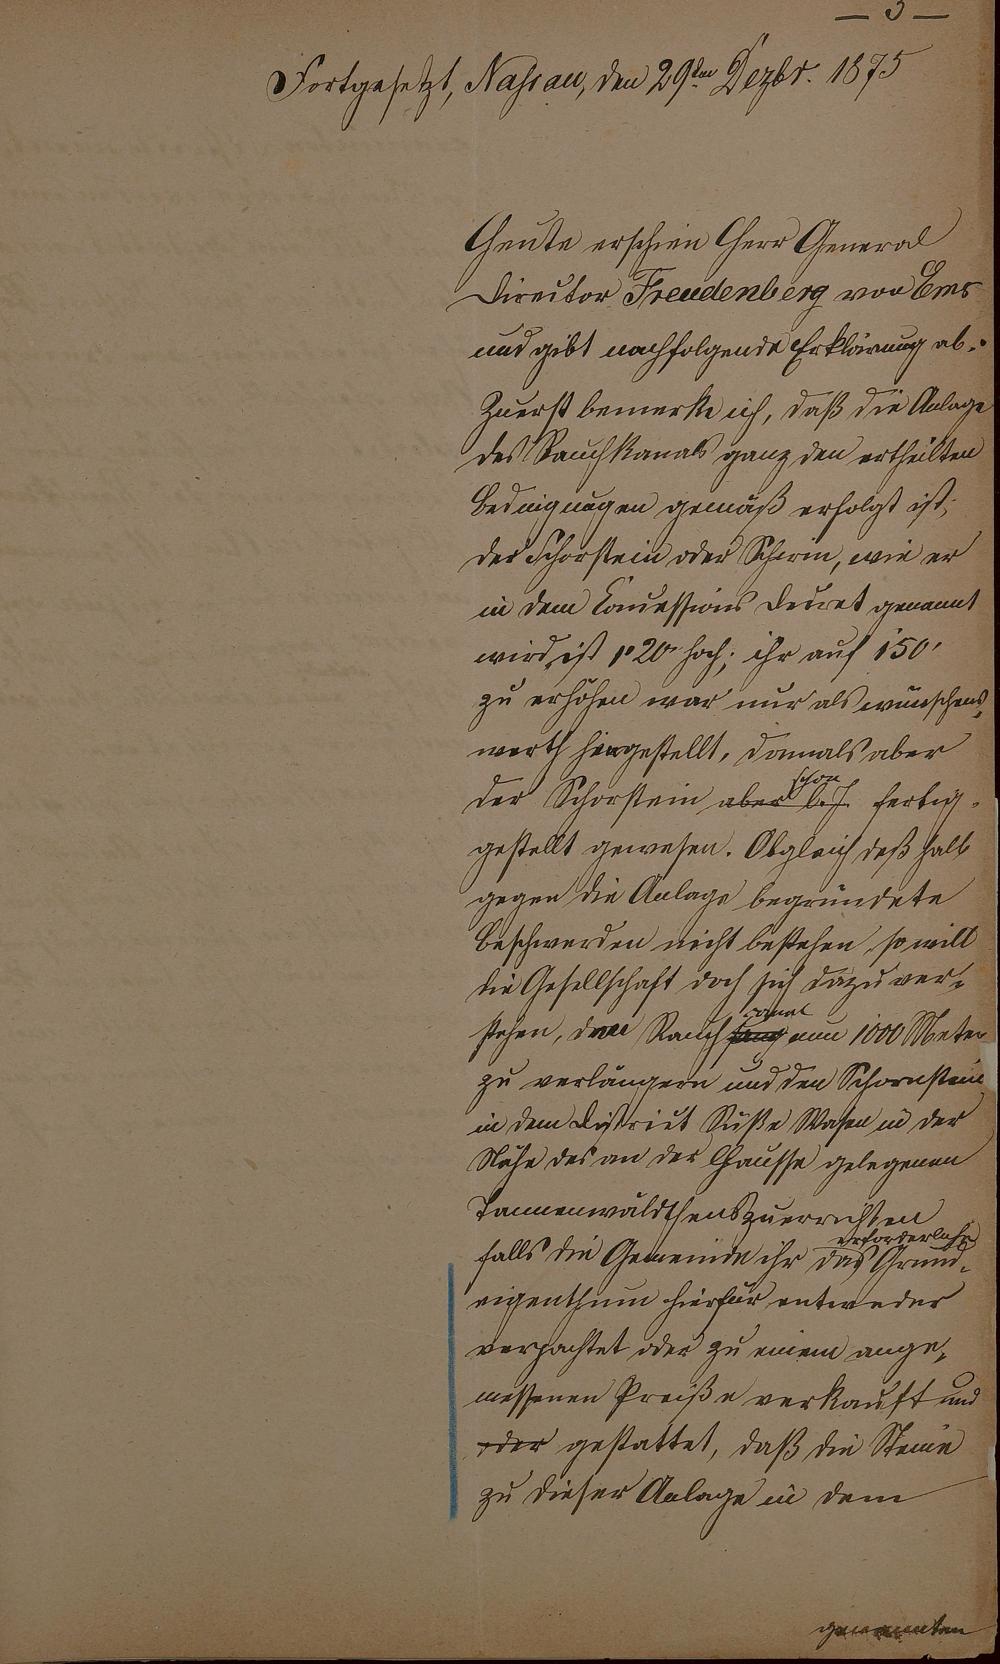 — 3 —
Fortgesetzt, Nassau, den 29ten Dezbr. 1875
Heute erschien Herr General
Director Freudenberg von Ems
und gibt nachfolgende Erklärung ab:
Zuerst bemerke ich, daß die Anlage
des Rauchkanals ganz den ertheilten
Bedingungen gemäß erfolgt ist;
der Schorstein oder Schirm, wie er
in dem Concessions Decret genannt
wird, ist 120' hoch; ihr auf 150'
zu erhöhen war nur als wünschens-
werth hingestellt, damals aber
schon
der Schorstein aber fertig-
gestellt gewesen. Obgleich deßhalb
gegen die Anlage begründete
Beschwerden nicht bestehen so will
die Gesellschaft doch sich dazu ver-
canal
stehen, den Rauchfang um 1000 Meter
zu verlängern und den Schornstein
in dem District Süße Wasen in der
Nähe des an der Chausse gelegenen
Tannenwäldchens zu errichten
erforderliche
falls die Gemeinde ihr das Grund-
eigenthum hierfür entweder
verpachtet oder zu einem ange-
messenen Preiße verkauft und
oder gestattet, daß die Steine
zu dieser Anlage in dem
genannten